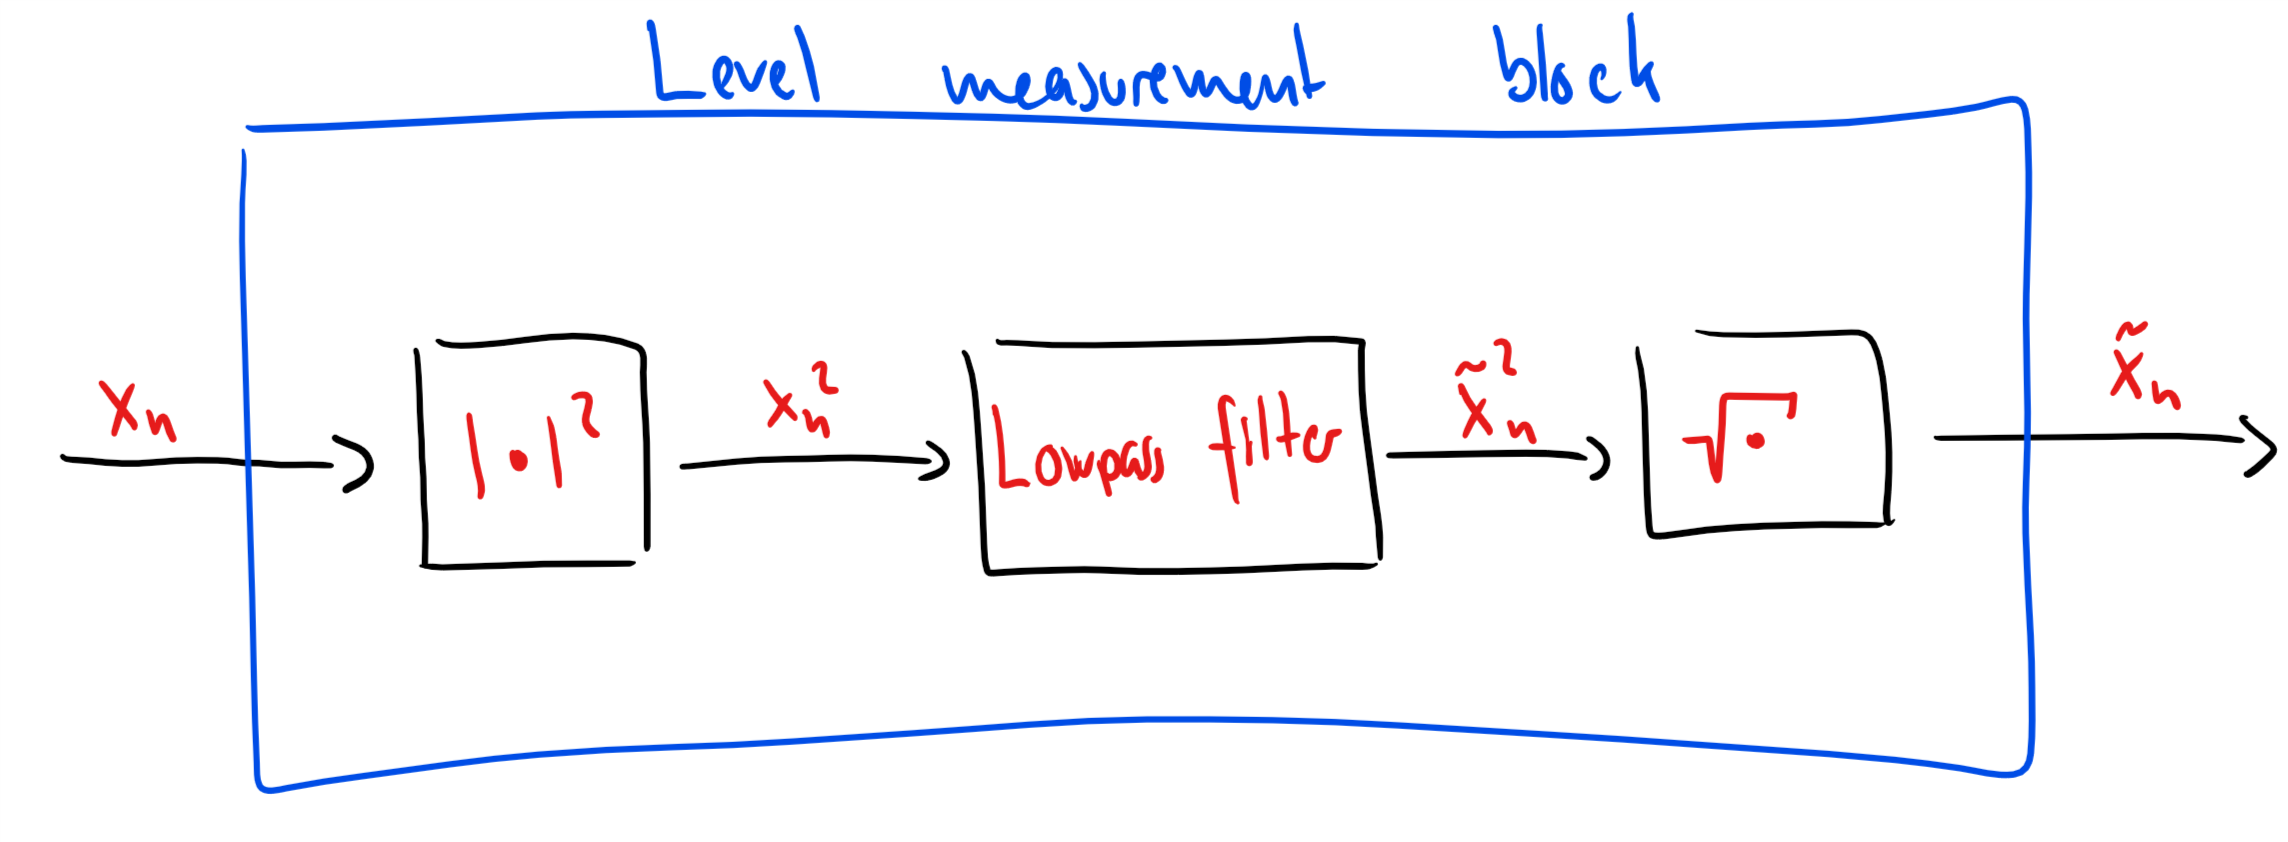 Level measurement block
xₙ
|•|²
xₙ²
Lowpass filter
x̃ₙ²
√•
x̃ₙ